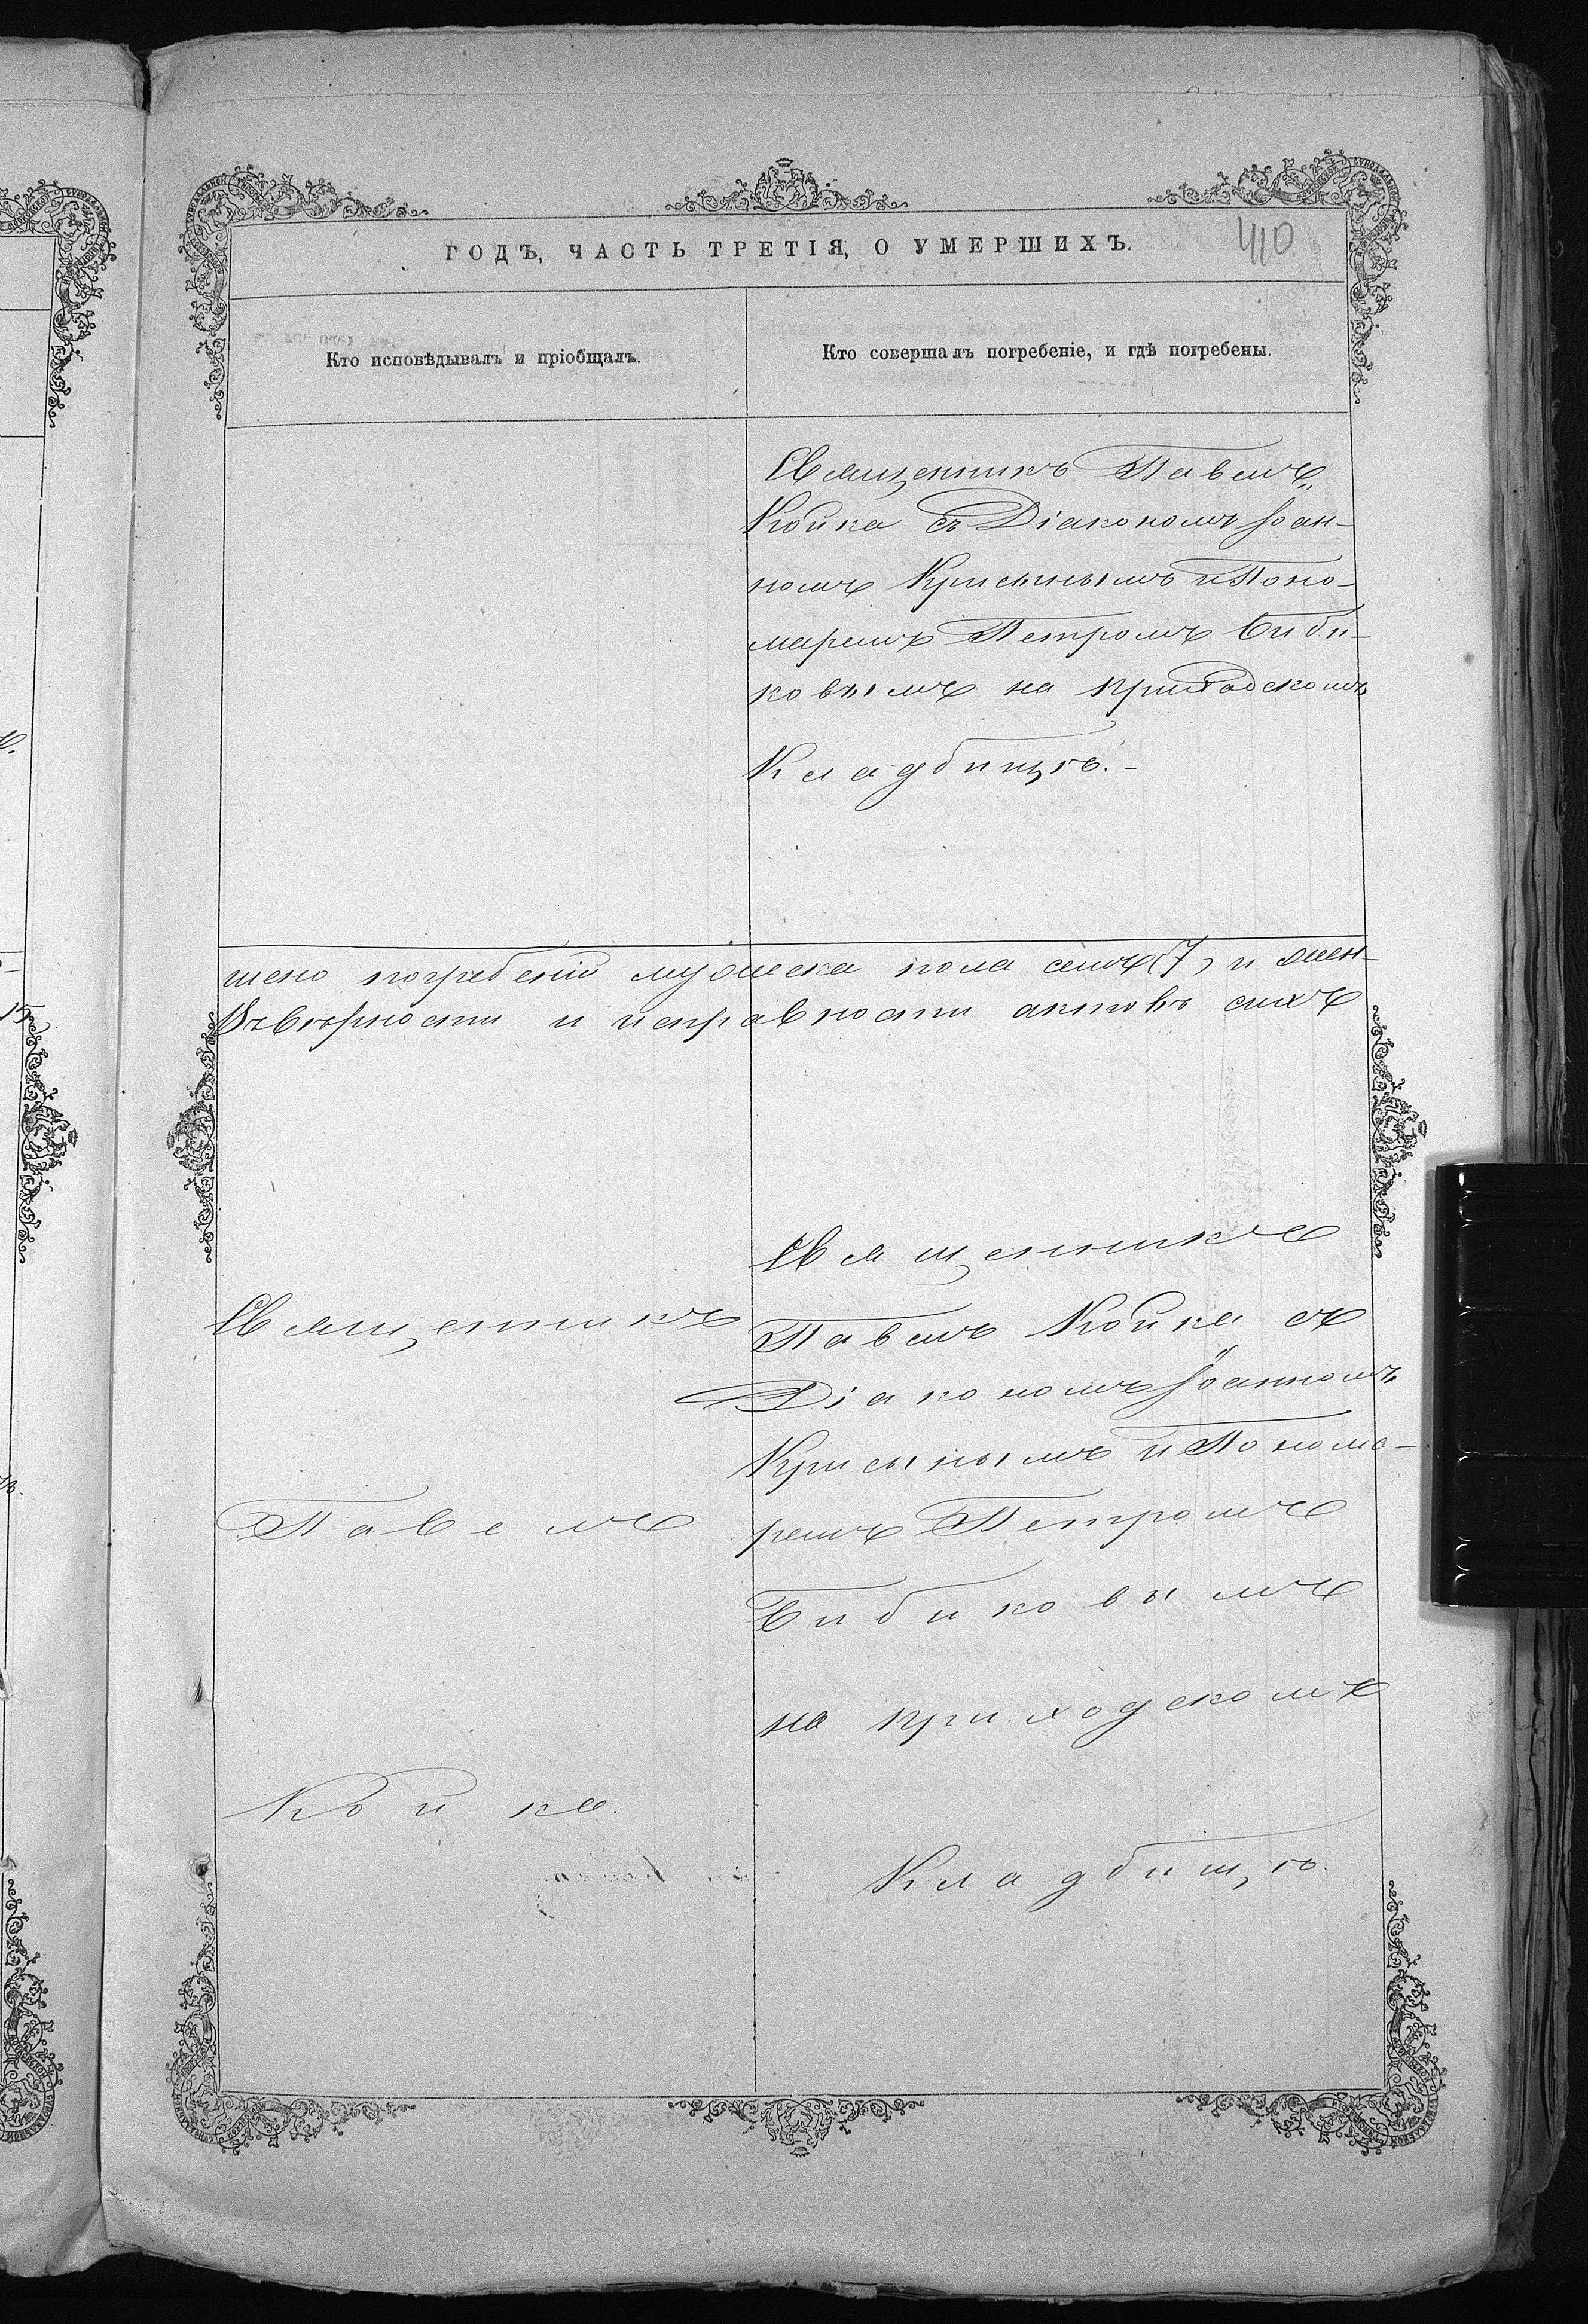 ГОДЪ, ЧАСТЬ ТРЕТІЯ, О УМЕРШИХЪ.
410
Кто исповѣдывалъ и пріобщалъ.
Кто совершалъ погребеніе, и гдѣ погребены.
Священникъ Павелъ
Койка съ Діакономъ Іоан-
номъ Крисынымъ и Поно-
маремъ Петромъ Биби-
ковымъ на приходскомъ
Кладбищѣ.-
шено погребеній мужеска пола семь (7) и жен-
Въ вѣрности и исправности актовъ сихъ
Священникъ
Павелъ
Койка.
Священникъ
Павелъ Койка съ
Діакономъ Іоанномъ
Крисынымъ и Понома-
ремъ Петромъ
Бибиковымъ
на приходскомъ
Кладбищѣ.